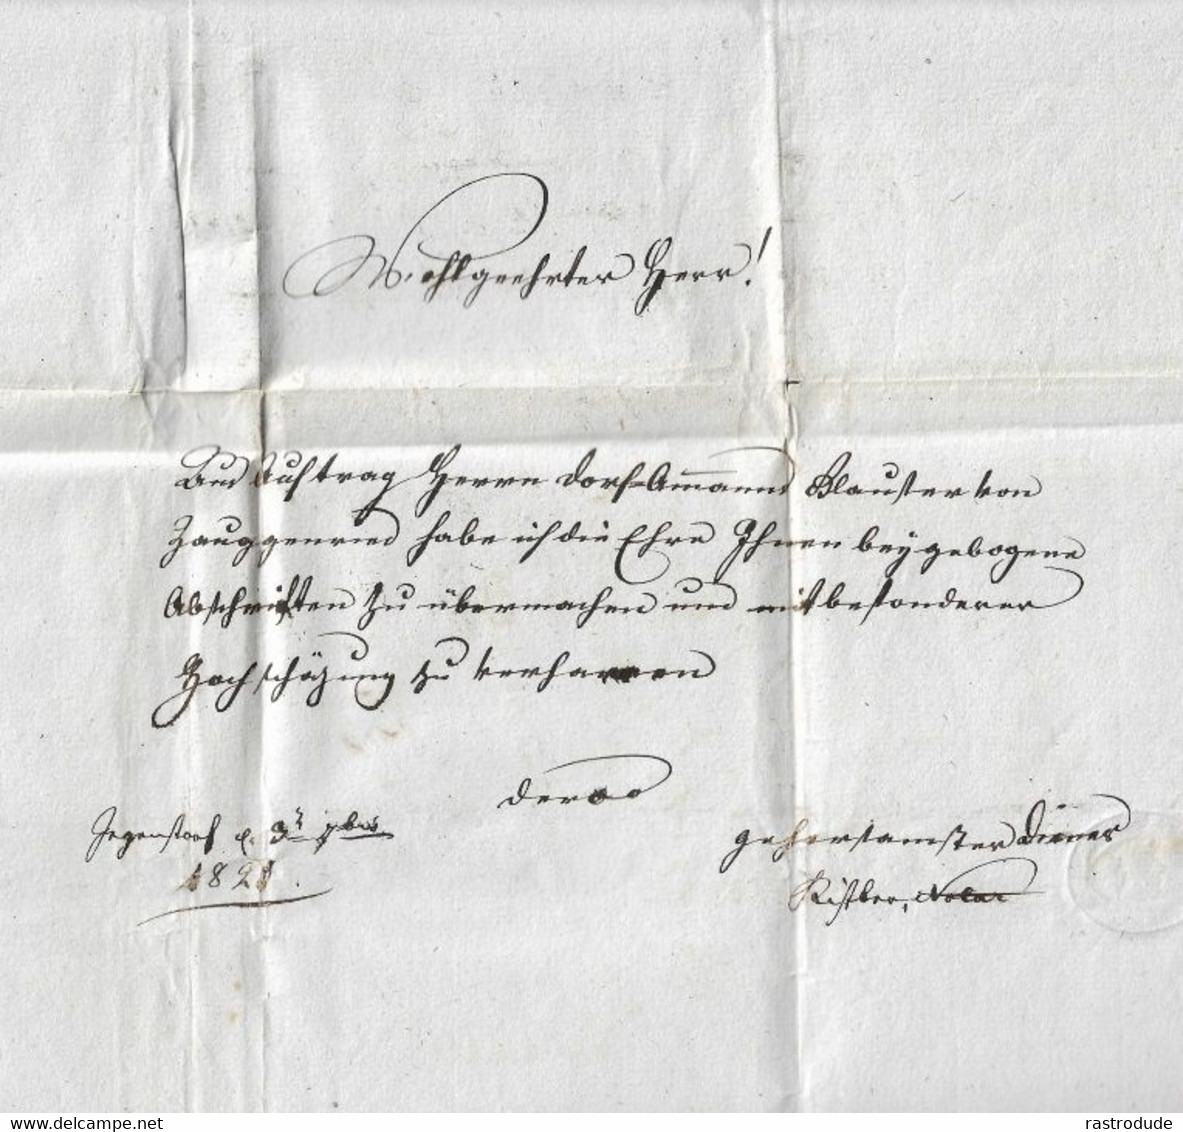 Wohlgeehrter Herr!
Aus Auftrag Herrn Dorf-Ammann Glauser von
Zauggenried habe ich die Ehre Ihnen beygebogene
Abschriften zu übermachen und mit besonderer
Hochschäzung zu verharren
Dero
Jegenstorf d. 3t 7bris
1821.
gehorsamster Diener
Notar
www.delcampe.net
rastrodude